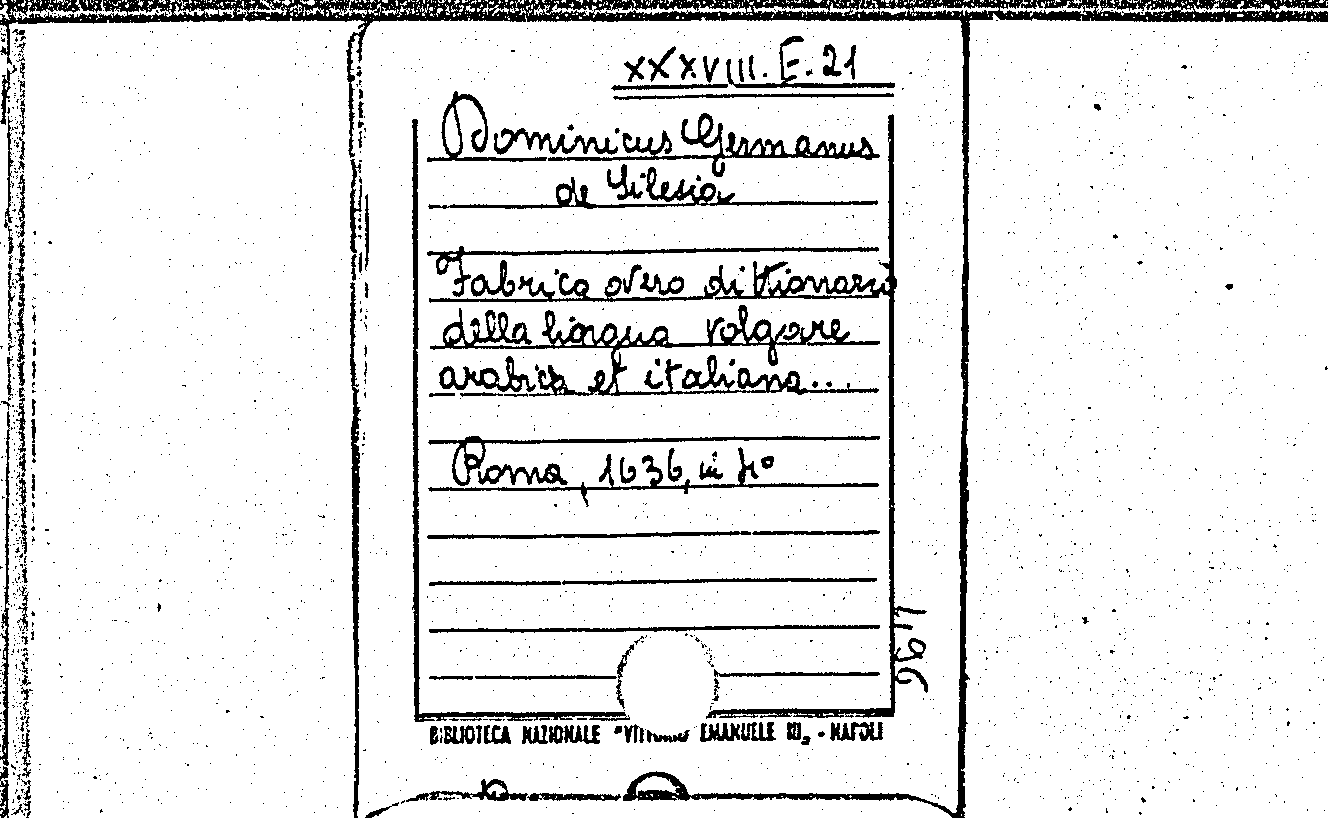 XXXVIII. E. 21
Dominicus Germanus
de Silesia
Fabrica overo dittionario
della lingua volgare
arabica et italiana...
Roma, 1636, in 4°
BIBLIOTECA NAZIONALE "VITTORIO EMANUELE III„ - NAPOLI